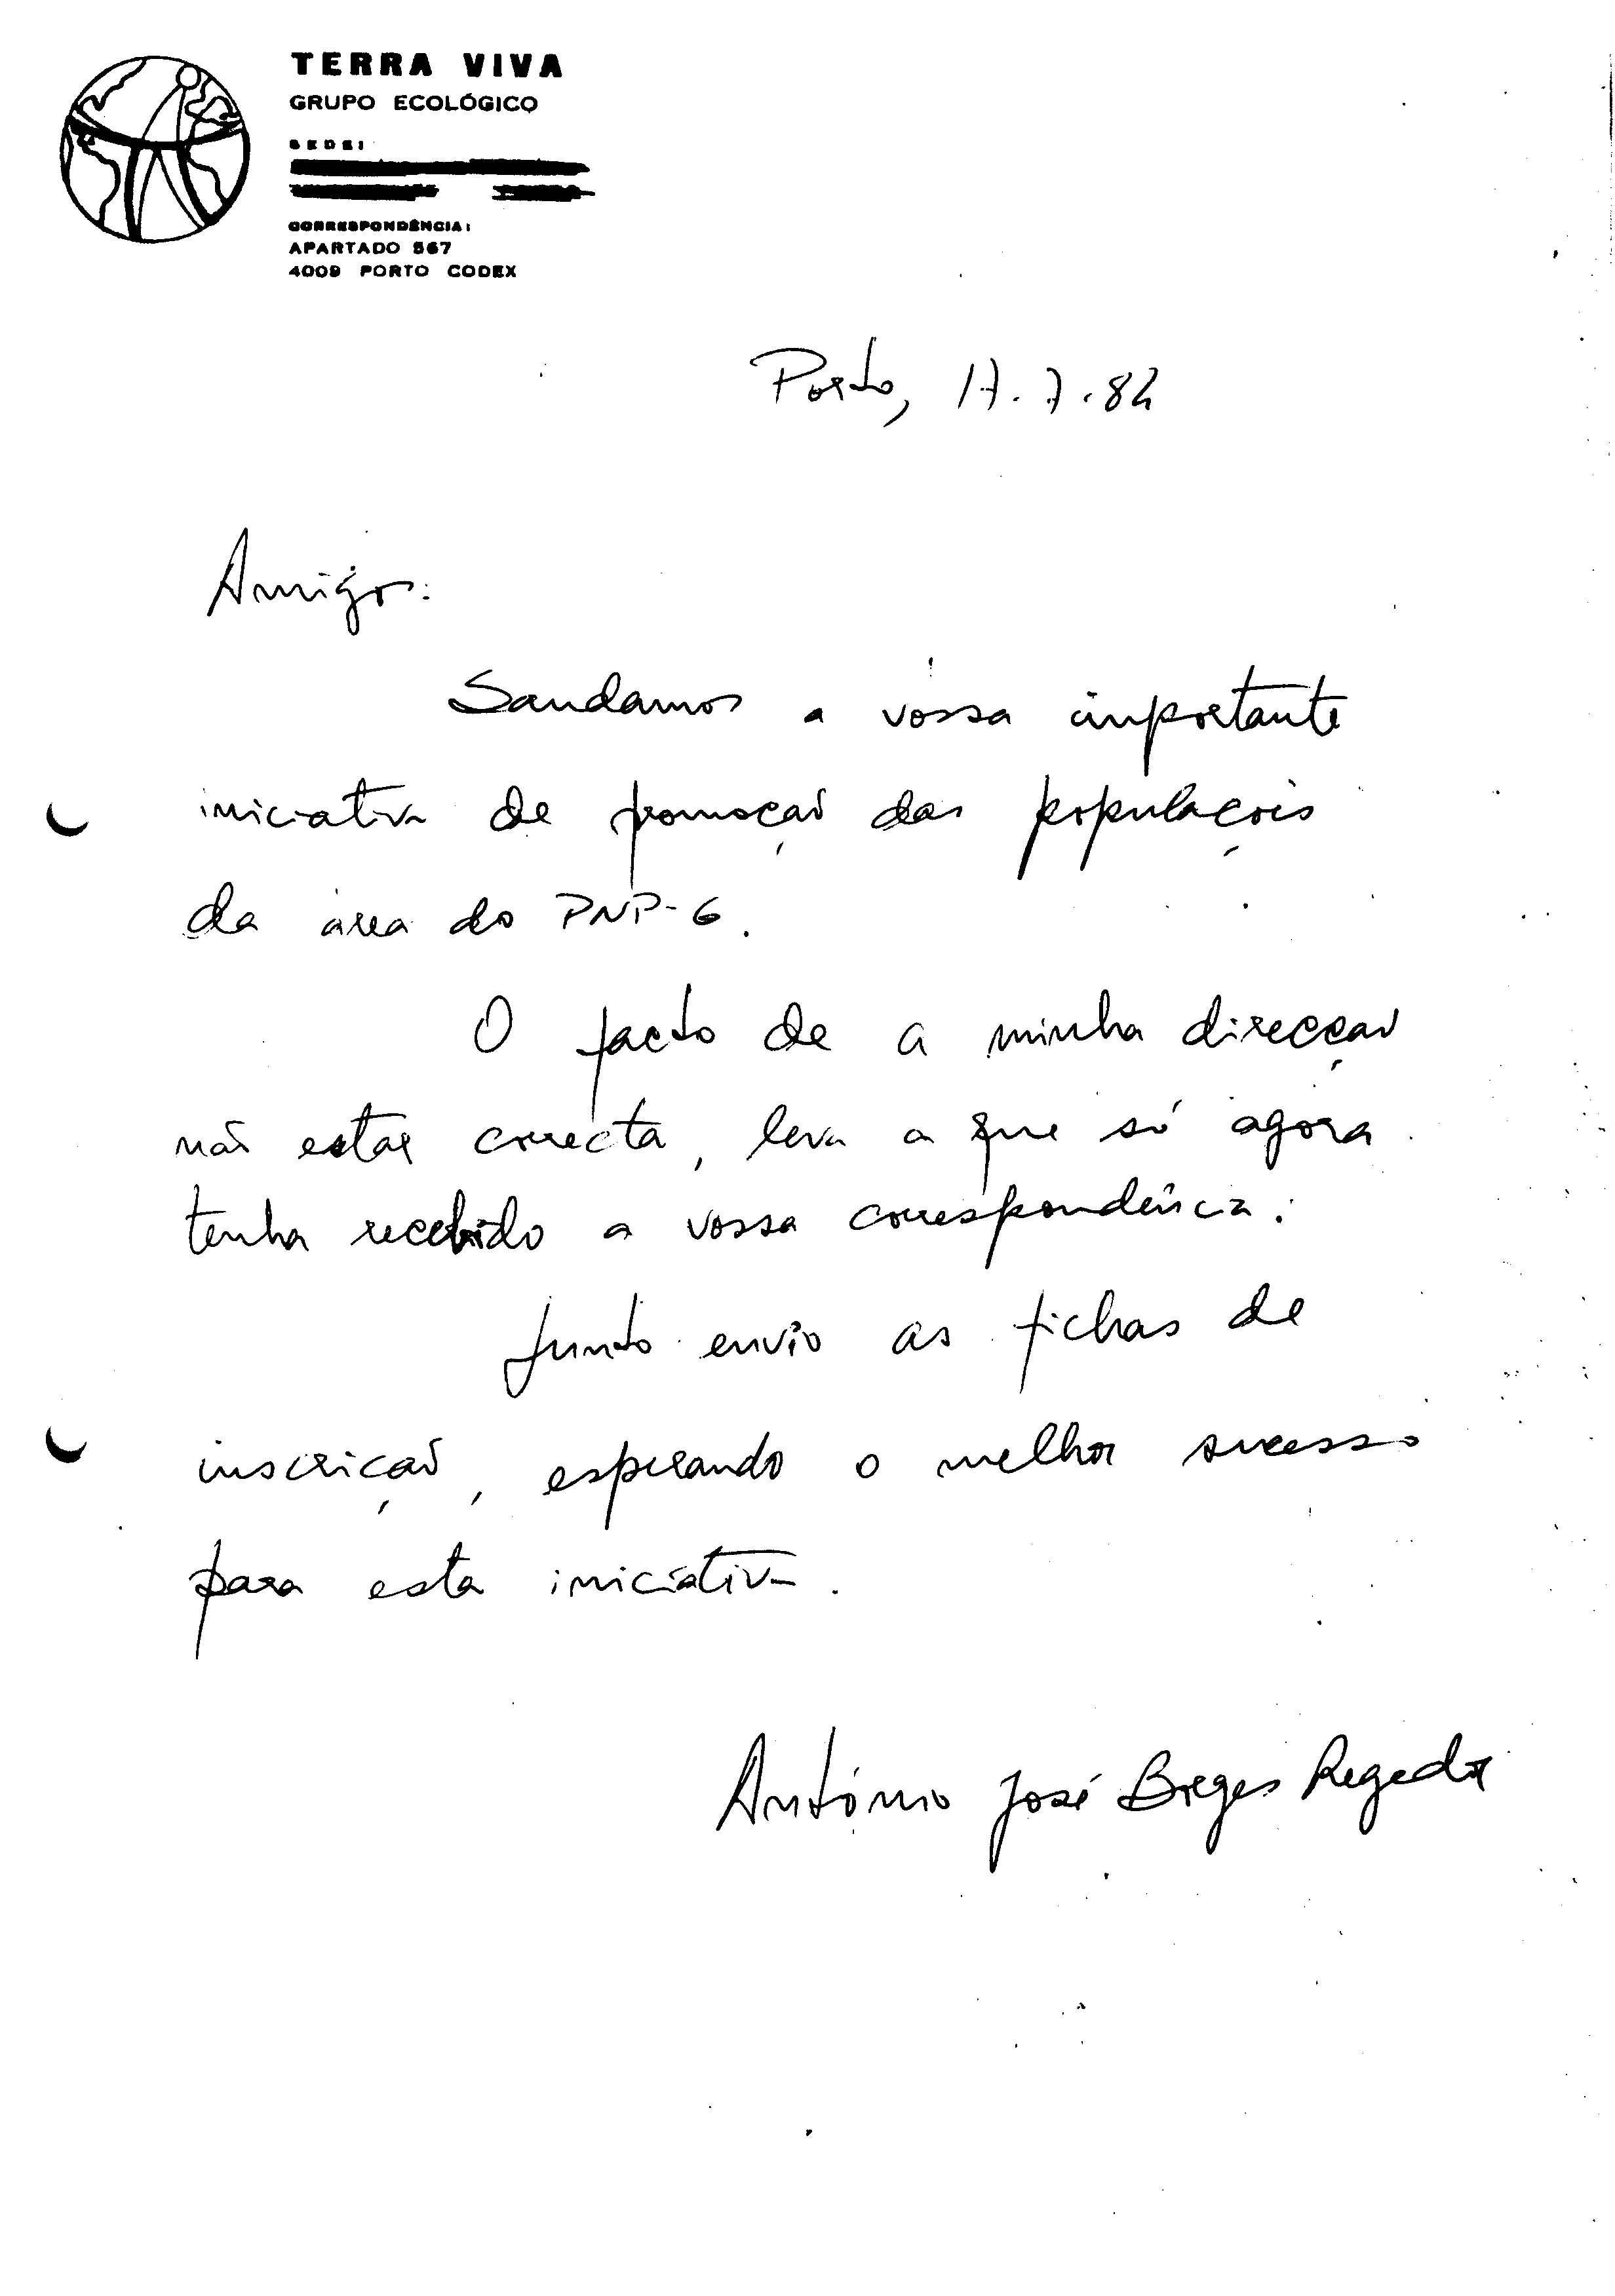 TERRA VIVA
GRUPO ECOLÓGICO
SEDE:
CORRESPONDÊNCIA:
APARTADO 567
4009 PORTO CODEX
Porto, 17.7.84
Amigos:
Saudamos a vossa importante
iniciativa de promoção das populações
da área do PNP-G.
O facto de a minha direcção
não estar correcta, leva a que só agora
tenha recebido a vossa correspondência.
Junto envio as fichas de
inscrição, esperando o melhor sucesso
para esta iniciativa.
António José Borges Regedor